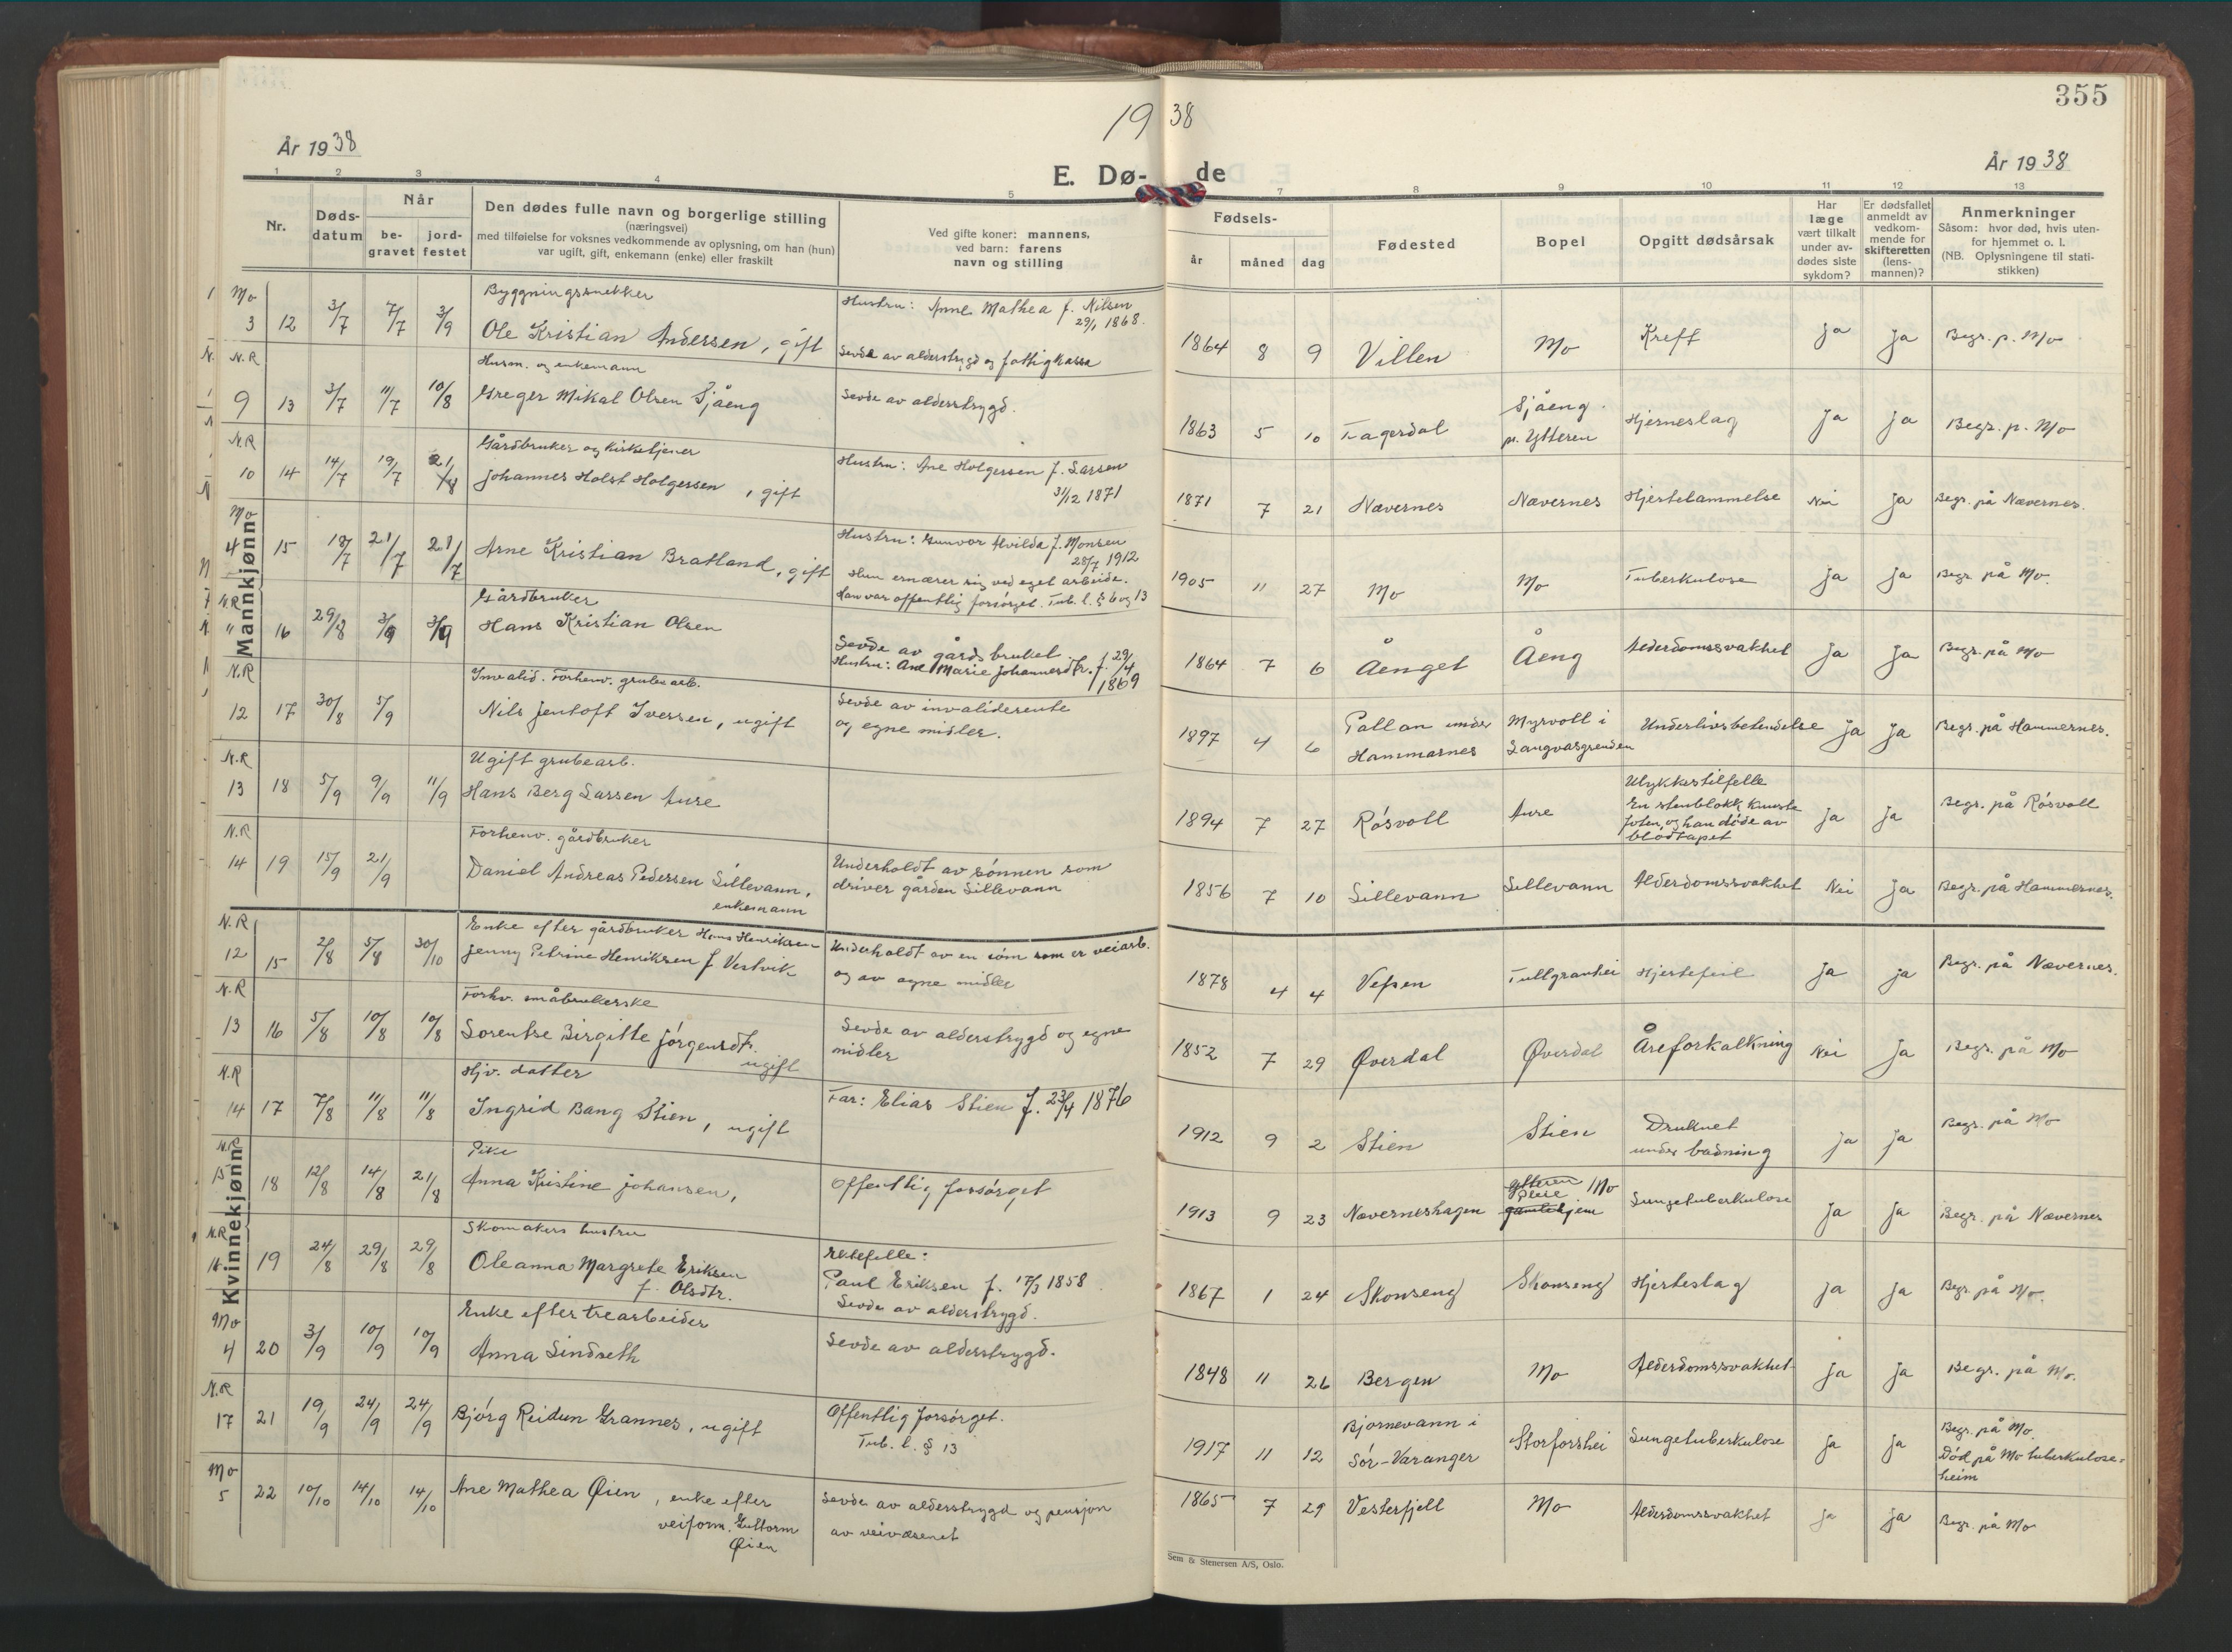 355
19 38
År 1938
År 1938
E. Dø- de
1 2 3 4 5 7 8 9 10 11 12 13
Nr.
Døds-
datum
Når
be-
gravet
jord-
festet
Den dødes fulle navn og borgerlige stilling
(næringsvei)
med tilføielse for voksnes vedkommende av oplysning, om han (hun)
var ugift, gift, enkemann (enke) eller fraskilt
Ved gifte koner: mannens,
ved barn: farens
navn og stilling
Fødsels-
år måned dag
Fødested
Bopel
Opgitt dødsårsak
Har
læge
vært tilkalt
under av-
dødes siste
sykdom?
Er dødsfallet
anmeldt av
vedkom-
mende for
skifteretten
(lens-
mannen)?
Anmerkninger
Såsom: hvor død, hvis uten-
for hjemmet o. l.
(NB. Oplysningene til stati-
stikken)
Mannkjønn
Mo
Byggningssnekker
Hustru: Anne Mathea f. Nilsen
29/1 1868.
3 12 3/7 7/7 3/9 Ole Kristian Andersen, gift
Levde av alderstrygd og fattigkassa
1864 8 9 Villen Mo Kreft ja ja Begr. p. Mo
N.R
Husm. og enkemann
9 13 3/7 11/7 10/8 Greger Mikal Olsen Sjåeng
Levde av alderstrygd.
1863 5 10 Fagerdal Sjåeng
pr. Ytteren
Hjerneslag ja ja Begr. p. Mo
N.R
Gårdbruker og kirketjener
10 14 14/7 19/7 21/8 Johannes Holst Holgersen, gift
Hustru: Ane Holgersen f. Larsen
31/12 1871
1871 7 21 Nævernes Nævernes Hjertelammelse Nei ja Begr. på Nævernes.
Mo
4 15 18/7 21/7 21/7 Arne Kristian Bratland, gift
Hustru: Gunvor Alvilda f. Monsen
28/7 1912
Hun ernærer sig ved eget arbeide.
Han var offentlig forsørget. Tub. l. § 6 og 13
1905 11 27 Mo Mo Tuberkulose ja ja Begr på Mo.
N.R
Gårdbruker
" 16 29/8 3/9 3/9 Hans Kristian Olsen
Levde av gårdsbruket.
Hustru: Ane Marie Johannesdtr. f. 29/4
1869
1864 7 6 Åenget Åeng Alderdomssvakhet ja ja Begr. på Mo
N.R
Invalid. Forhenv. grubearb.
12 17 30/8 5/9 Nils Jentoft Iversen, ugift
Levde av invaliderente
og egne midler.
1897 4 6 Pallan under
Hammarnes
Myrvoll i
Langvasgrenden
Underlivsbetendelse ja ja Begr. på Hammernes.
N.R
Ugift grubearb.
13 18 5/9 9/9 11/9 Hans Berg Larsen Aure
1894 7 27 Røsvoll Aure
Ulykkestilfelle
En stenblokk knuste
foten, og han døde av
blodtapet
ja ja Begr. på Røsvoll
N.R
Forhenv. gårdbruker
14 19 15/9 21/9 Daniel Andreas Pedersen Lillevann,
enkemann
Underholdt av sønnen som
driver gården Lillevann
1856 7 10 Lillevann Lillevann Alderdomssvakhet Nei ja Begr. på Hammernes.
Kvinnekjønn
N.R
Enke efter gårdbruker Hans Henriksen
12 15 2/8 5/8 30/10 Jenny Petrine Henriksen f Vestvik
Underholdt av en sønn som er veiarb.
og av egne midler
1878 4 4 Vefsen Tullgranhei Hjertefeil ja ja Begr. på Nævernes.
N.R
Forhv. småbrukerske
13 16 5/8 10/8 10/8 Lorentse Birgitte Jørgensdtr.
ugift
Levde av alderstrygd og egne
midler
1852 7 29 Øverdal Øverdal Åreforkalkning Nei ja Begr. på Mo
N.R
Hjv. datter
14 17 7/8 11/8 11/8 Ingrid Bang Stien, ugift
Far: Elias Stien f. 23/4 1876
1912 9 2 Stien Stien Druknet
under badning
ja ja Begr. på Mo
N.R
Pike
15 18 12/8 14/8 21/8 Anna Kristine Johansen,
Offentlig forsørget
1913 9 23 Næverneshagen Ytteren Mo
pleie
gamlehjem
Lungetuberkulose ja ja Begr. på Nævernes
N.R
Skomakers hustru
16 19 24/8 29/8 29/8 Oleanna Margrete Eriksen
f. Olsdtr.
Ektefelle:
Paul Eriksen f. 17/3 1858
Levde av alderstrygd.
1867 1 24 Skonseng Skonseng Hjerteslag ja ja Begr. på Mo.
Mo
Enke efter trearbeider
4 20 3/9 10/9 10/9 Anna Lindseth
Levde av alderstrygd.
1848 11 26 Bergen Mo Alderdomssvakhet ja ja Begr. på Mo.
N.R
17 21 19/9 24/9 24/9 Bjørg Reidun Grannes, ugift
Offentlig forsørget.
Tub. l. § 13
1917 11 12 Bjørnevann i
Sør-Varanger
Storforshei Lungetuberkulose ja ja Begr. på Mo.
Død på Mo tuberkulose-
heim
Mo
5 22 10/10 14/10 14/10 Ane Mathea Øien, enke efter
veiform. Guttorm
Øien
Levde av alderstrygd og pensjon
av veivæsenet
1865 7 29 Vesterfjell Mo Alderdomssvakhet ja ja Begr. på Mo
Sem & Stenersen A/S, Oslo.